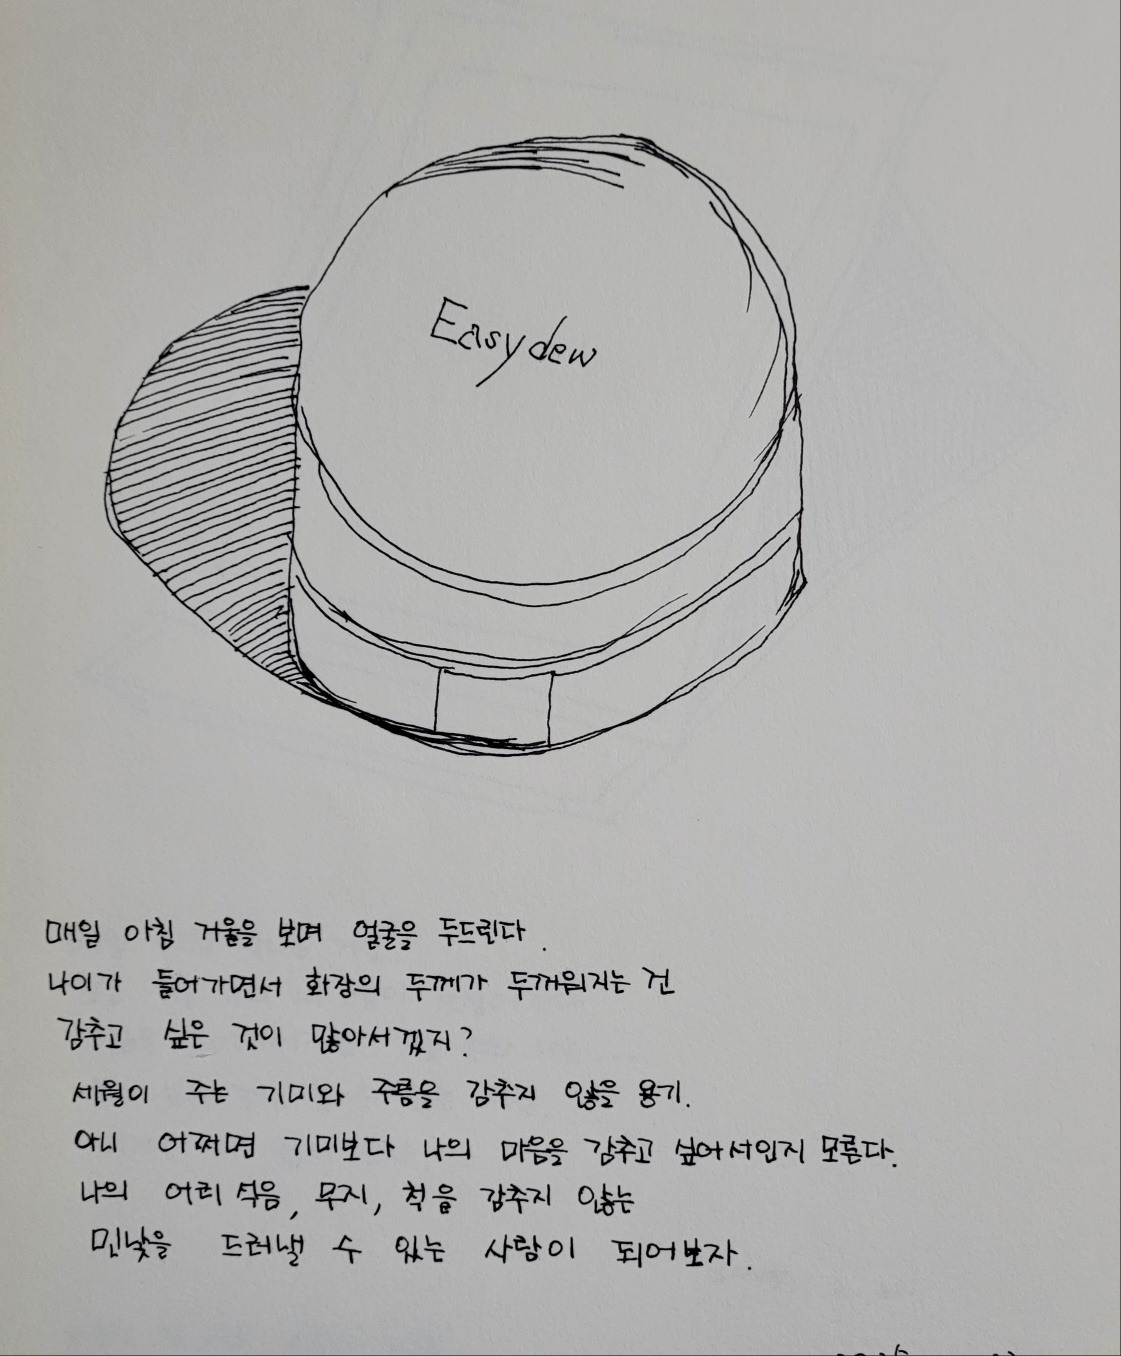 Easydew
매일 아침 거울을 보며 얼굴을 두드린다.
나이가 들어가면서 화장의 두께가 두꺼워지는 건
감추고 싶은 것이 많아서겠지?
세월이 주는 기미와 주름을 감추지 않을 용기.
아니 어쩌면 기미보다 나의 마음을 감추고 싶어서인지 모른다.
나의 어리석음, 무지, 척을 감추지 않는
민낯을 드러낼 수 있는 사람이 되어보자.